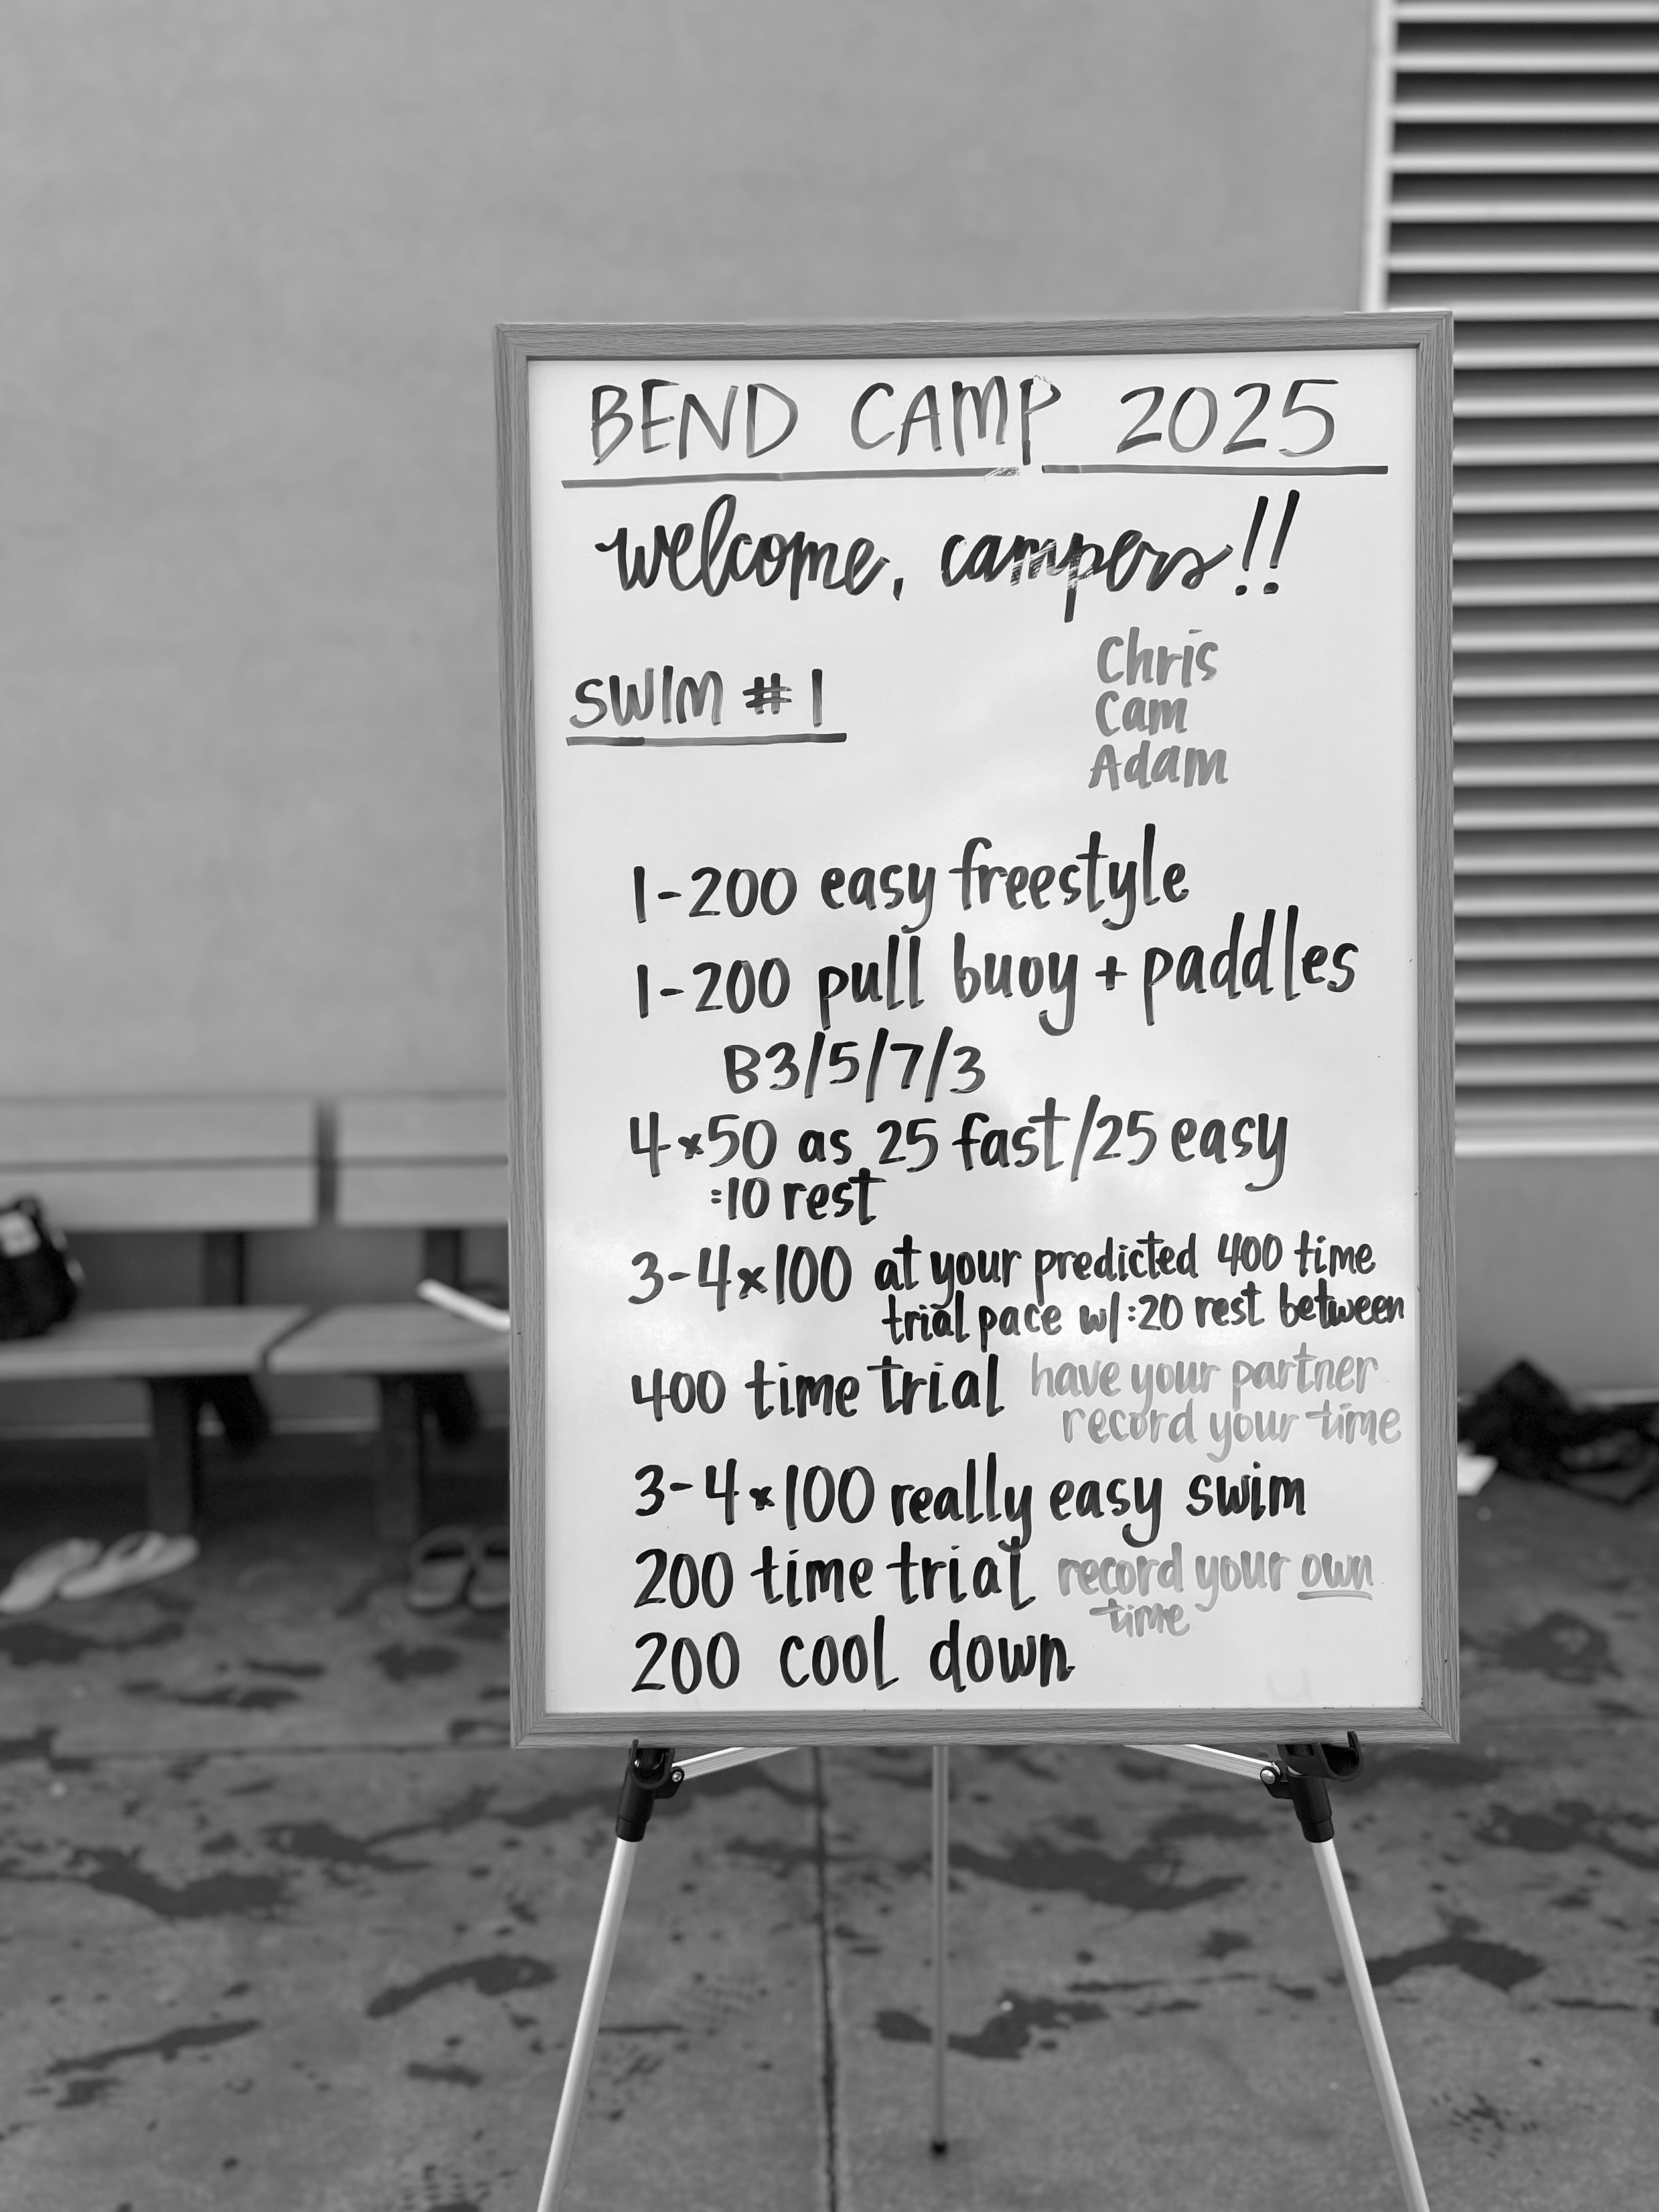 BEND CAMP 2025
welcome, campers!!
SWIM #1
Chris
Cam
Adam
1-200 easy freestyle
1-200 pull buoy + paddles
B3/5/7/3
4x50 as 25 fast/25 easy
:10 rest
3-4x100 at your predicted 400 time
trial pace w/ :20 rest between
400 time trial have your partner
record your time
3-4x100 really easy swim
200 time trial record your own
time
200 cool down